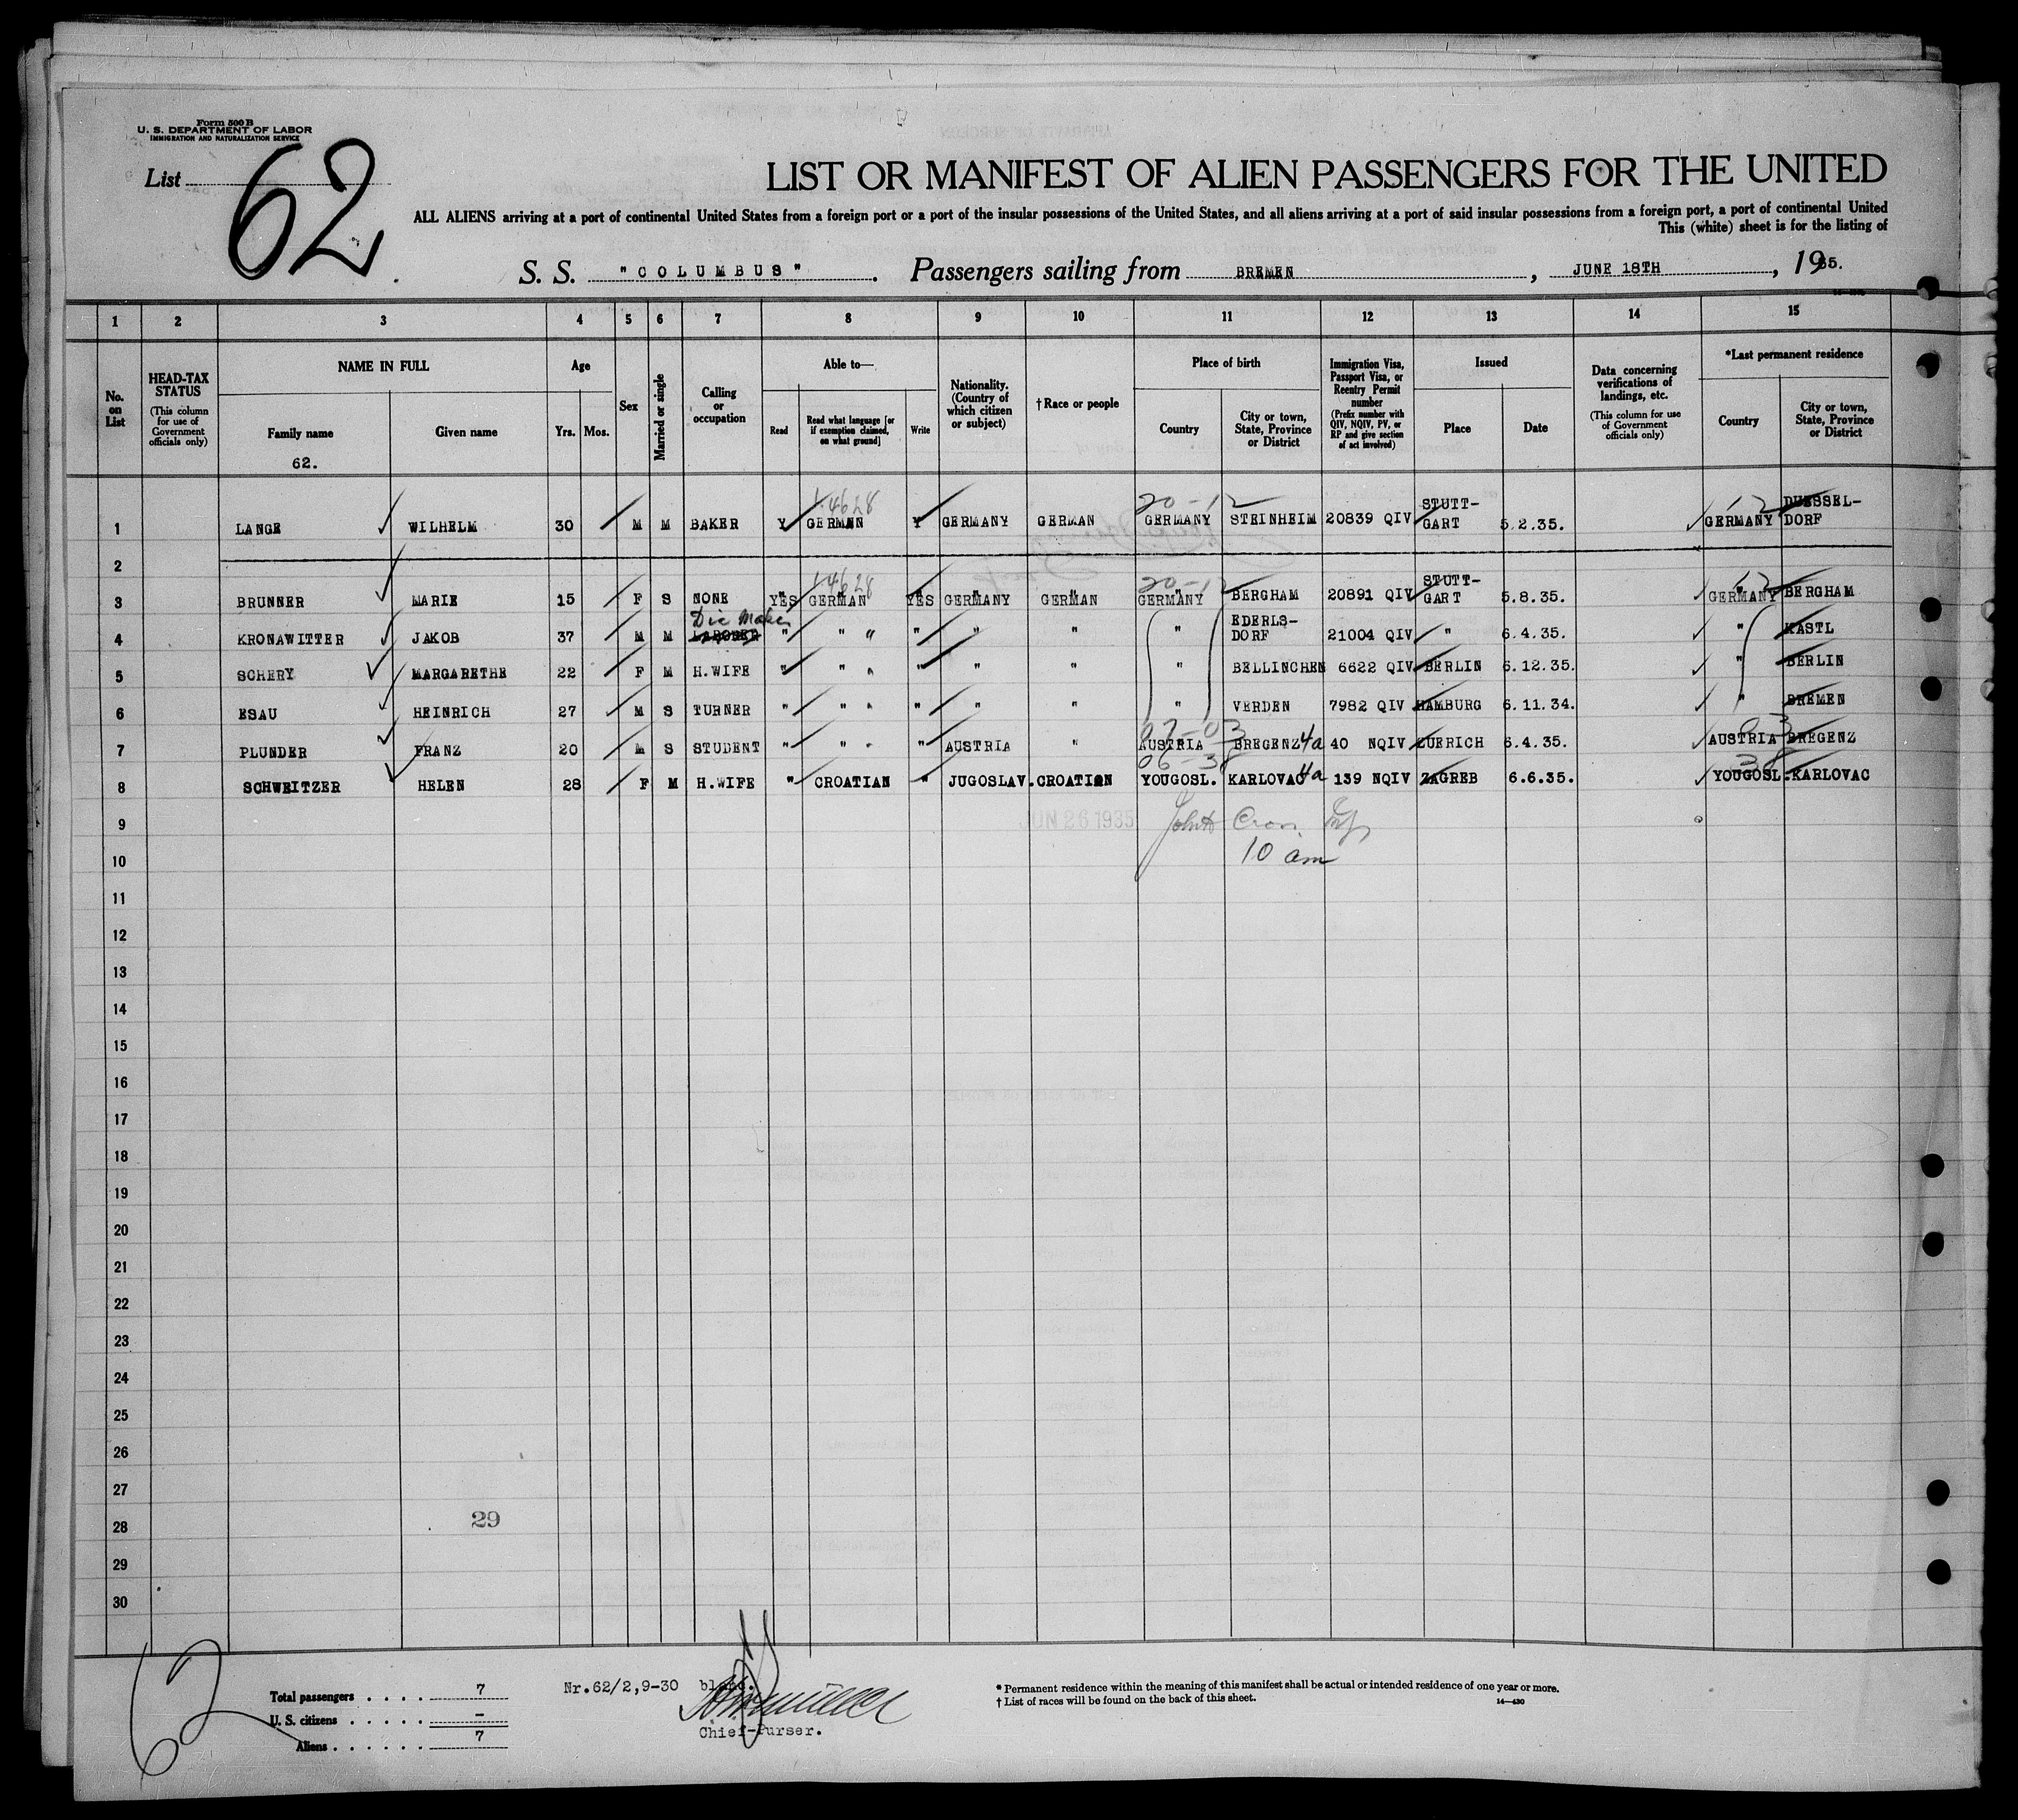 Form 500 B
U. S. DEPARTMENT OF LABOR
IMMIGRATION AND NATURALIZATION SERVICE
List 62
LIST OR MANIFEST OF ALIEN PASSENGERS FOR THE UNITED
ALL ALIENS arriving at a port of continental United States from a foreign port or a port of the insular possessions of the United States, and all aliens arriving at a port of said insular possessions from a foreign port, a port of continental United
This (white) sheet is for the listing of
S. S. "COLUMBUS". Passengers sailing from BREMEN, JUNE 18TH, 1935.
1 2 3 4 5 6 7 8 9 10 11 12 13 14 15
No. on List
HEAD-TAX STATUS (This column for use of Government officials only)
NAME IN FULL
Family name
62.
Given name
Age
Yrs. Mos.
Sex
Married or single
Calling or occupation
Able to—
Read
Read what language [or if exemption claimed, on what ground]
Write
Nationality. (Country of which citizen or subject)
†Race or people
Place of birth
Country
City or town, State, Province or District
Immigration Visa, Passport Visa, or Reentry Permit number (Prefix number with QIV, NQIV, PV, or RP and give section of act involved)
Issued
Place
Date
Data concerning verifications of landings, etc. (This column for use of Government officials only)
*Last permanent residence
Country
City or town, State, Province or District
20-12 12
1 LANGE WILHELM 30 M M BAKER Y GERMAN Y GERMANY GERMAN GERMANY STEINHEIM 20839 QIV STUTT-GART 5.2.35. GERMANY DUESSEL-DORF
2
20-12 12
3 BRUNNER MARIE 15 F S NONE YES GERMAN YES GERMANY GERMAN GERMANY BERGHAM 20891 QIV STUTT-GART 5.8.35. GERMANY BERGHAM
Die Maker
4 KRONAWITTER JAKOB 37 M M LABORER " " " " " " " EDERLS-DORF 21004 QIV " 6.4.35. " KASTL
5 SCHERY MARGARETHE 22 F M H.WIFE " " " " " " " BELLINCHEN 6622 QIV BERLIN 6.12.35. " BERLIN
6 ESAU HEINRICH 27 M S TURNER " " " " " " " VERDEN 7982 QIV HAMBURG 6.11.34. " BREMEN
03
7 PLUNDER FRANZ 20 M S STUDENT " " " " AUSTRIA " AUSTRIA BREGENZ 4a 40 NQIV ZUERICH 6.4.35. AUSTRIA BREGENZ
06-38 38
8 SCHWEITZER HELEN 28 F M H.WIFE " CROATIAN " JUGOSLAV. CROATION YOUGOSL. KARLOVAC 4a 139 NQIV ZAGREB 6.6.35. YOUGOSL. KARLOVAC
9 JUN 26 1935
10 10 am
11
12
13
14
15
16
17
18
19
20
21
22
23
24
25
26
27
28 29
29
30
62
Total passengers . . . . 7
U. S. citizens . . . . . –
Aliens . . . . . . 7
Nr.62/2,9-30 blanc.
Chief-Purser.
* Permanent residence within the meaning of this manifest shall be actual or intended residence of one year or more.
† List of races will be found on the back of this sheet.
14—430